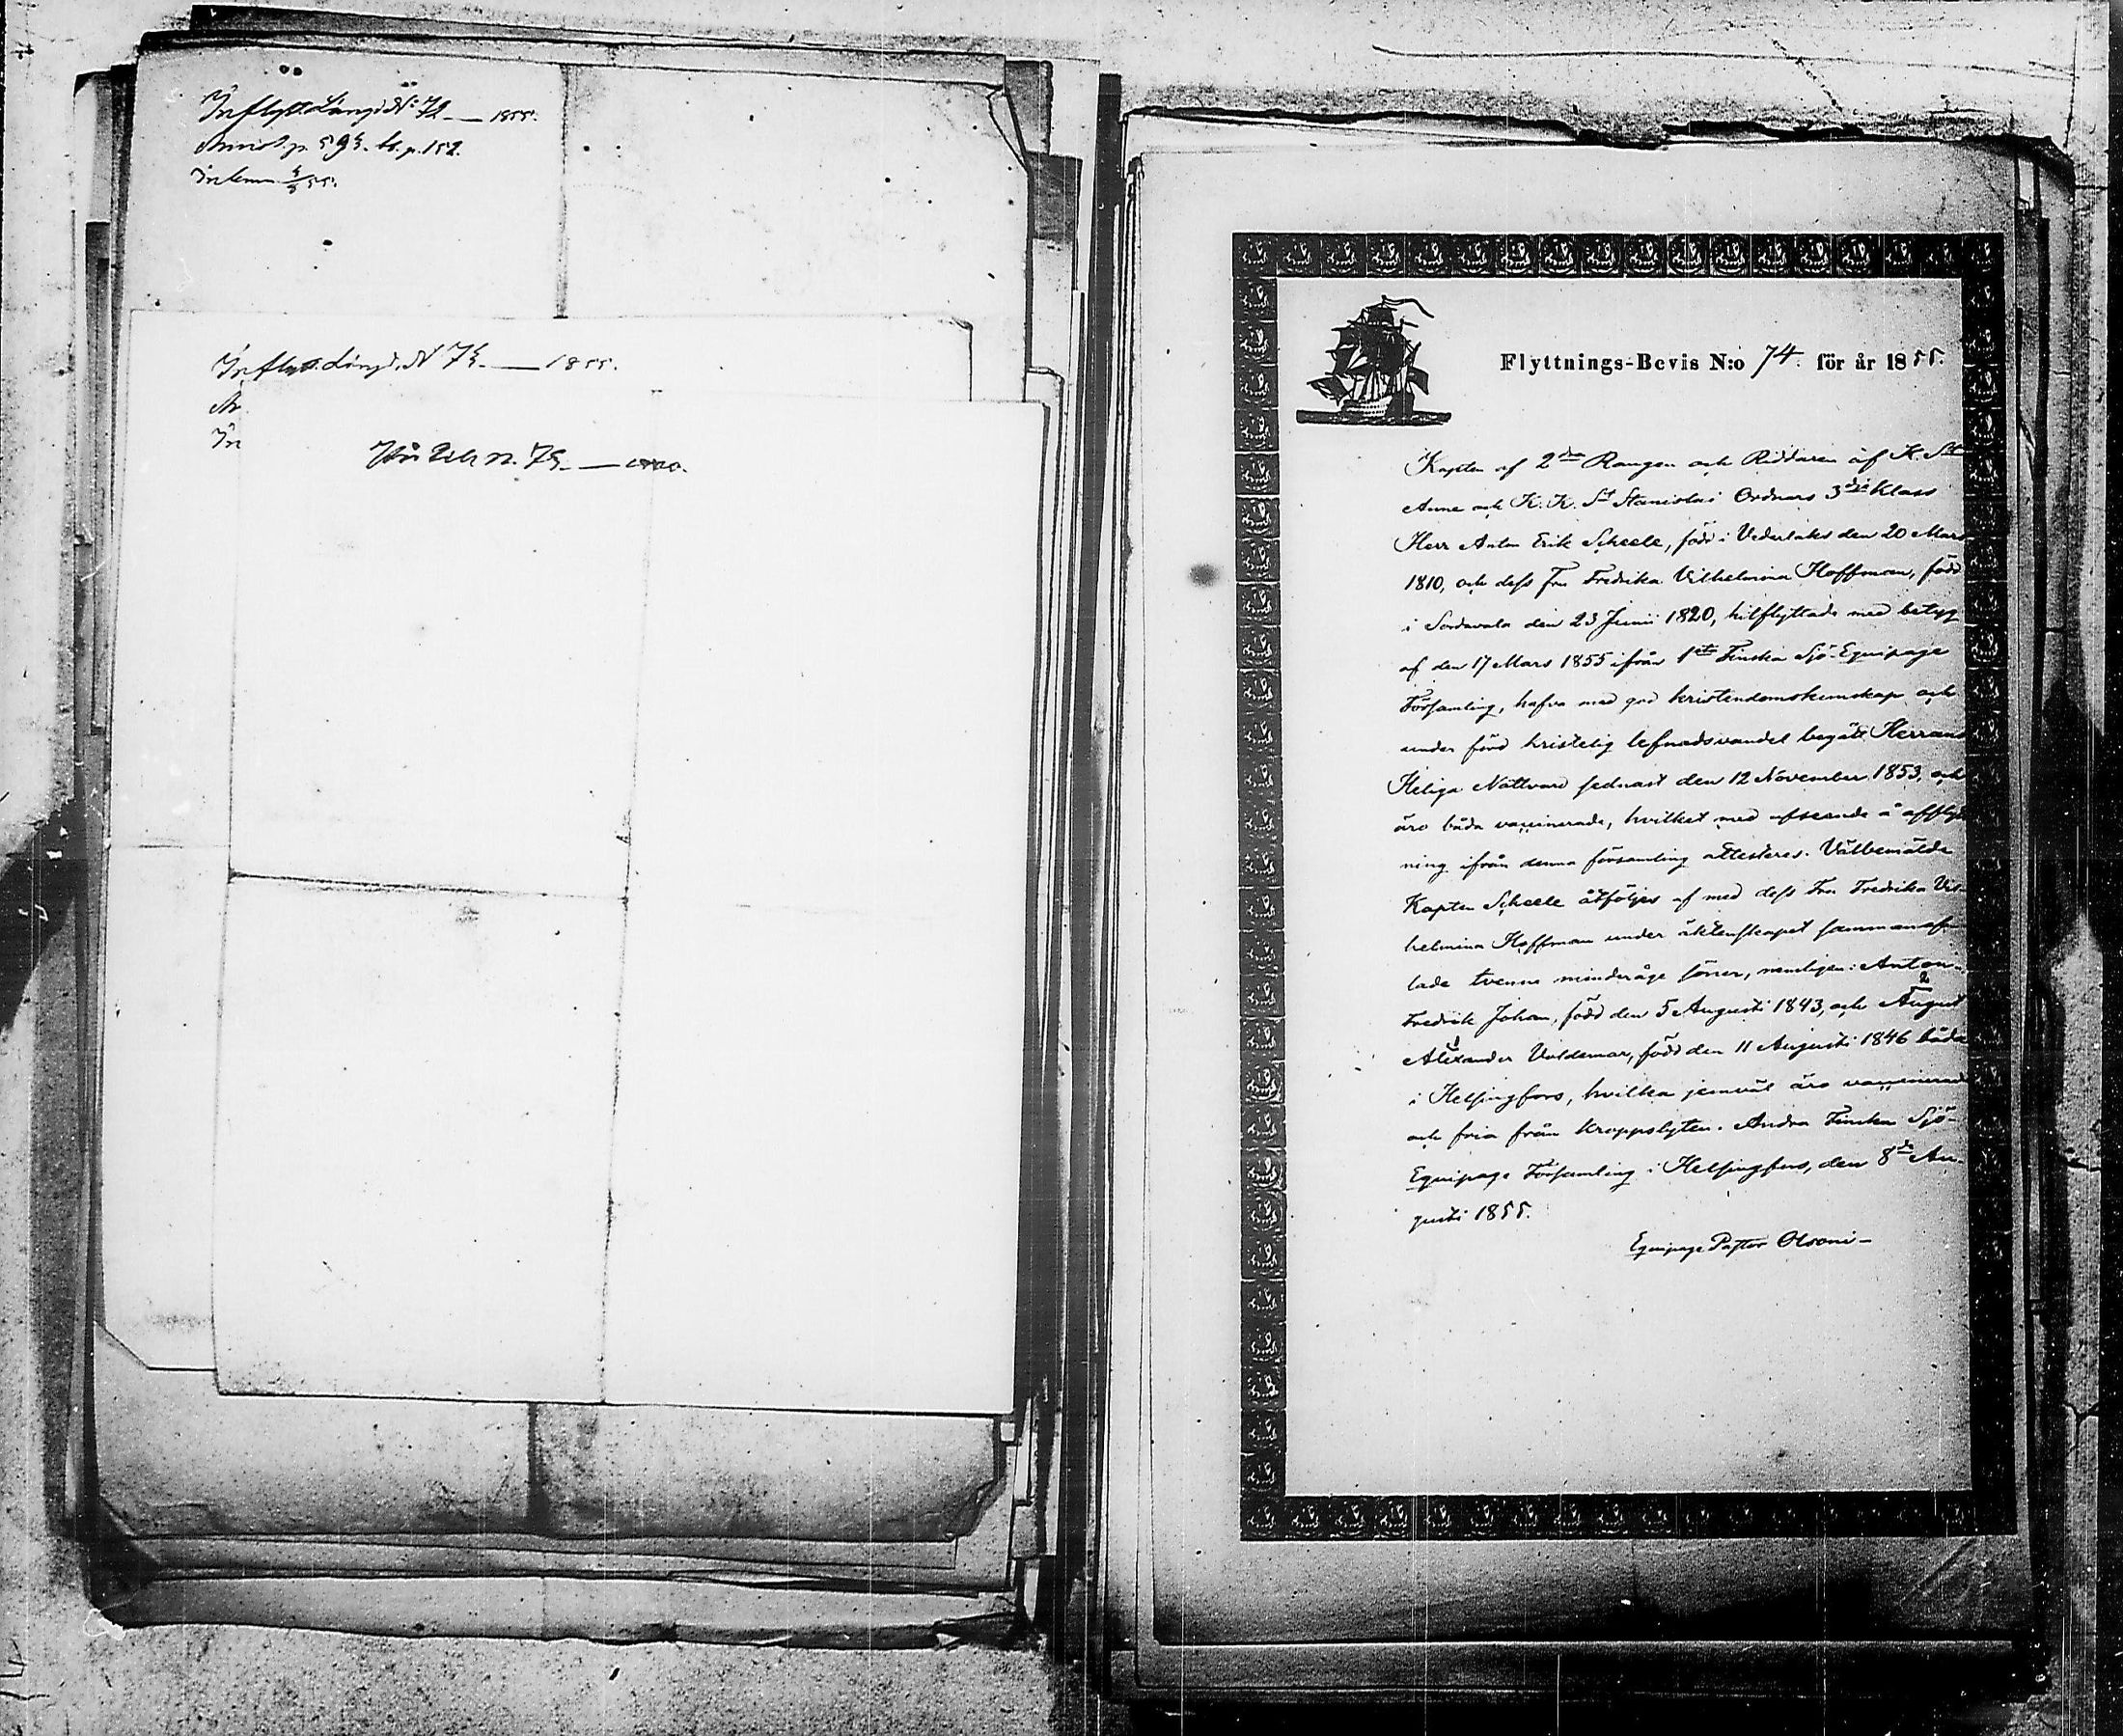 Inflytt. Längd. N:o 72 — 1855.
p. 593. bb. p. 152.
Inlemn.
Inflytt. Längd. N 73. — 1855.
An
In
n. 73. —
Flyttnings-Bevis N:o 74. för år 1855.
Kapten af 2dra Rangen och Riddaren af K. St
Anne och K. K. St Stanislai Ordnars 3dje Klass
Herr Anton Erik Scheele, född i Vederlaks den 20 Mars
1810, och dess Fru Fredrika Vilhelmina Hoffman, född
i Sordavala den 23 Junii 1820, hitflyttade med betyg
af den 17 Mars 1855 ifrån 1sta Finska Sjö-Equipage
Församling, hafva med god kristendomskunskap och
under förd kristelig lefnadsvandel begått Herrans
Heliga Nattvard sednast den 12 November 1853, och
äro båda vaccinerade, hvilket med afseende å afflytt
ning ifrån denna församling attesteres. Välbemälde
Kapten Scheele åtföljes af med dess Fru Fredrika Vil-
helmina Hoffman under äktenskapet sammanaf-
lade tvenne minderåge söner, nemligen: Anton
Fredrik Johan, född den 5 Augusti 1843, och August
Alexander Valdemar, född den 11 Augusti 1846 båda
i Helsingfors, hvilka jemväl äro vaccinerade
och fria från kroppslyten. Andra Finska Sjö-
Equipage Församling i Helsingfors, den 8de Au-
gusti 1855.
Equipage Pastor Olsoni